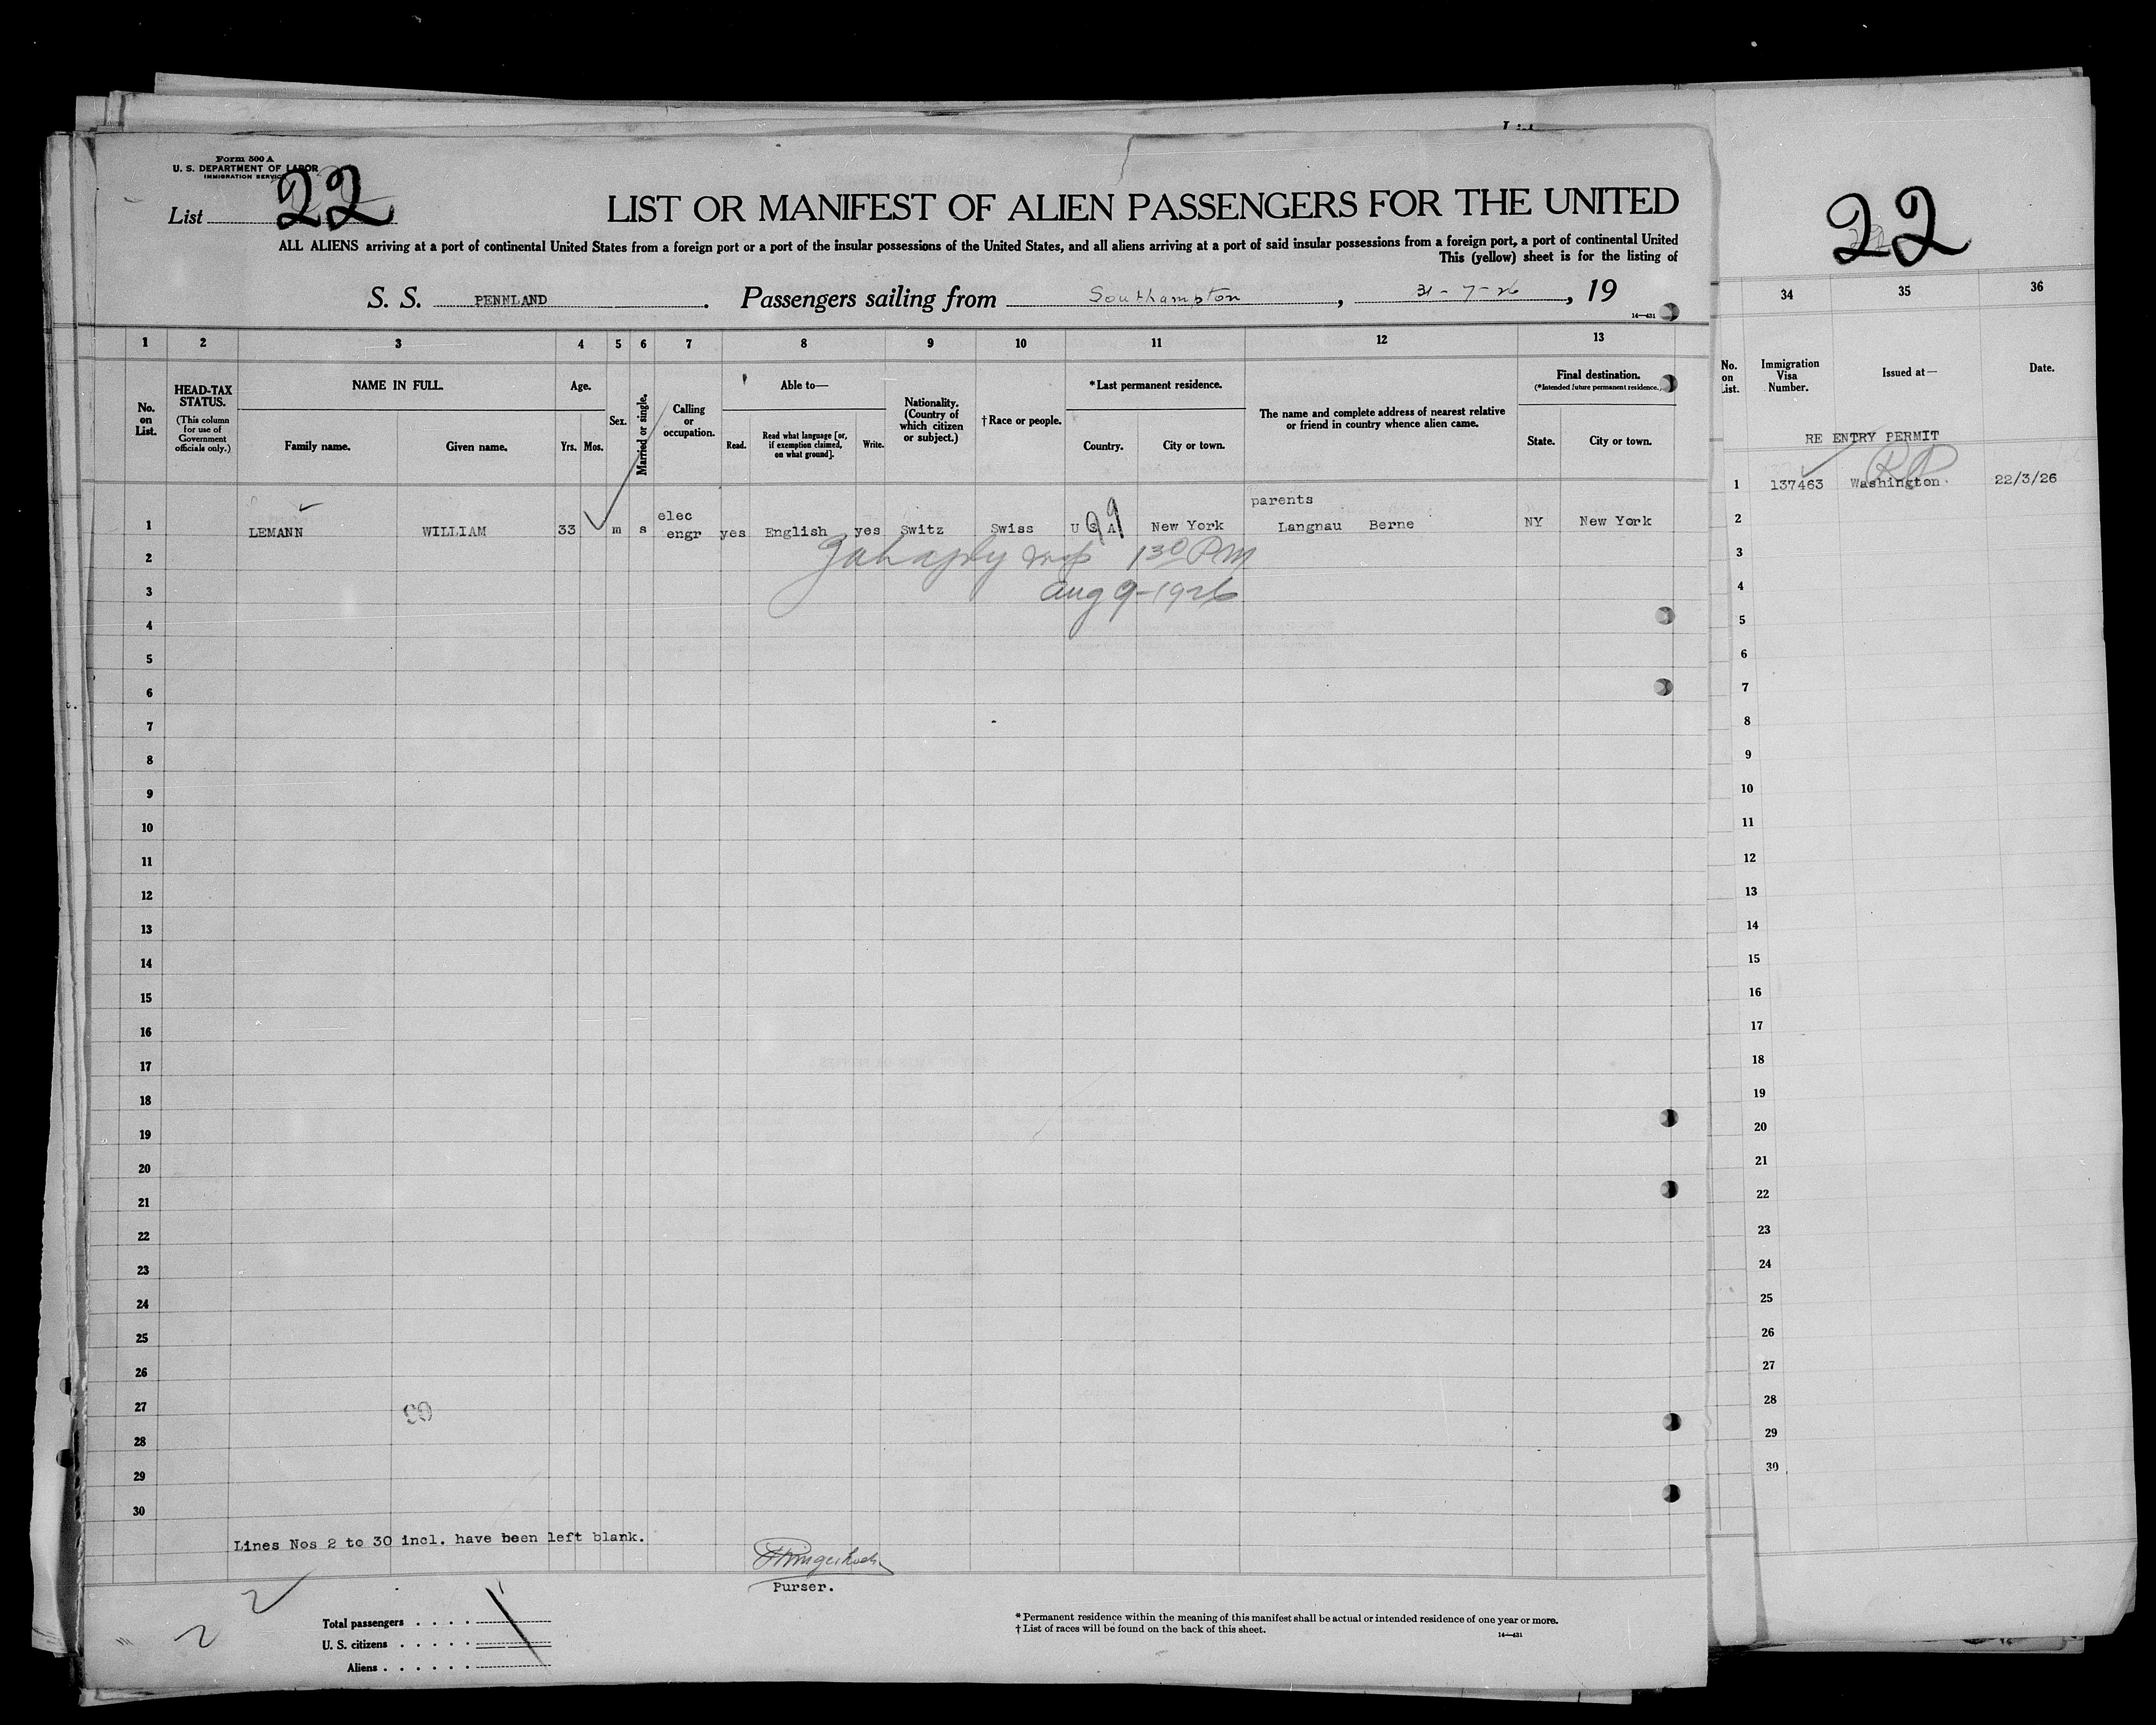 Form 500 A
U. S. DEPARTMENT OF LABOR
IMMIGRATION SERVICE
List 22
LIST OR MANIFEST OF ALIEN PASSENGERS FOR THE UNITED
ALL ALIENS arriving at a port of continental United States from a foreign port or a port of the insular possessions of the United States, and all aliens arriving at a port of said insular possessions from a foreign port, a port of continental United
This (yellow) sheet is for the listing of
S. S. PENNLAND. Passengers sailing from Southampton, 31-7-26, 19
14—431
1 2 3 4 5 6 7 8 9 10 11 12 13
No. on List.
HEAD-TAX STATUS.
(This column for use of Government officials only.)
NAME IN FULL.
Family name. Given name.
Age.
Yrs. Mos.
Sex.
Married or single.
Calling or occupation.
Able to—
Read. Read what language [or, if exemption claimed, on what ground]. Write.
Nationality. (Country of which citizen or subject.)
†Race or people.
*Last permanent residence.
Country. City or town.
The name and complete address of nearest relative or friend in country whence alien came.
Final destination.
(*Intended future permanent residence.)
State. City or town.
parents
1 LEMANN WILLIAM 33 m s elec engr yes English yes Switz Swiss U S A New York Langnau Berne NY New York
2 130 PM
3 Aug 9-1926
4
5
6
7
8
9
10
11
12
13
14
15
16
17
18
19
20
21
22
23
24
25
26
27
28
29
30
Lines Nos 2 to 30 incl. have been left blank.
Purser.
Total passengers
U. S. citizens
Aliens
* Permanent residence within the meaning of this manifest shall be actual or intended residence of one year or more.
† List of races will be found on the back of this sheet.
14—431
22
34 35 36
No. on List.
Immigration Visa Number.
Issued at—
Date.
RE ENTRY PERMIT
1 137463 Washington. 22/3/26
2
3
4
5
6
7
8
9
10
11
12
13
14
15
16
17
18
19
20
21
22
23
24
25
26
27
28
29
30